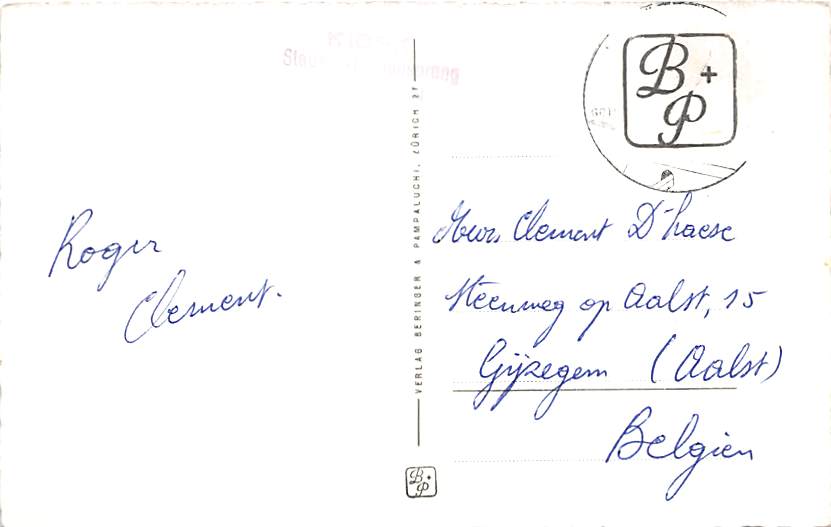 Roger
Clement.
VERLAG BERINGER & PAMPALUCHI, ZÜRICH 27
B + P
Clement D'haese
Steenweg op Aalst, 15
Gijzegem (Aalst)
Belgien
B + P